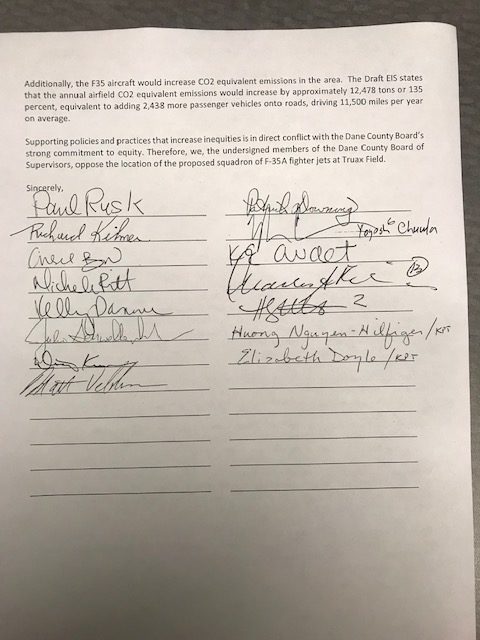 Additionally, the F35 aircraft would increase CO2 equivalent emissions in the area. The Draft EIS states
that the annual airfield CO2 equivalent emissions would increase by approximately 12,478 tons or 135
percent, equivalent to adding 2,438 more passenger vehicles onto roads, driving 11,500 miles per year
on average.
Supporting policies and practices that increase inequities is in direct conflict with the Dane County Board's
strong commitment to equity. Therefore, we, the undersigned members of the Dane County Board of
Supervisors, oppose the location of the proposed squadron of F-35A fighter jets at Truax Field.
Sincerely,
Paul Rusk
Richard Kilmer
Michele Ritt
Kelly Danner
Matt Veldran
Patrick Downing
Yogesh Chawla
6
Audet
13
2
Huong Nguyen-Hilfiger / KPT
Elizabeth Doyle / KPT